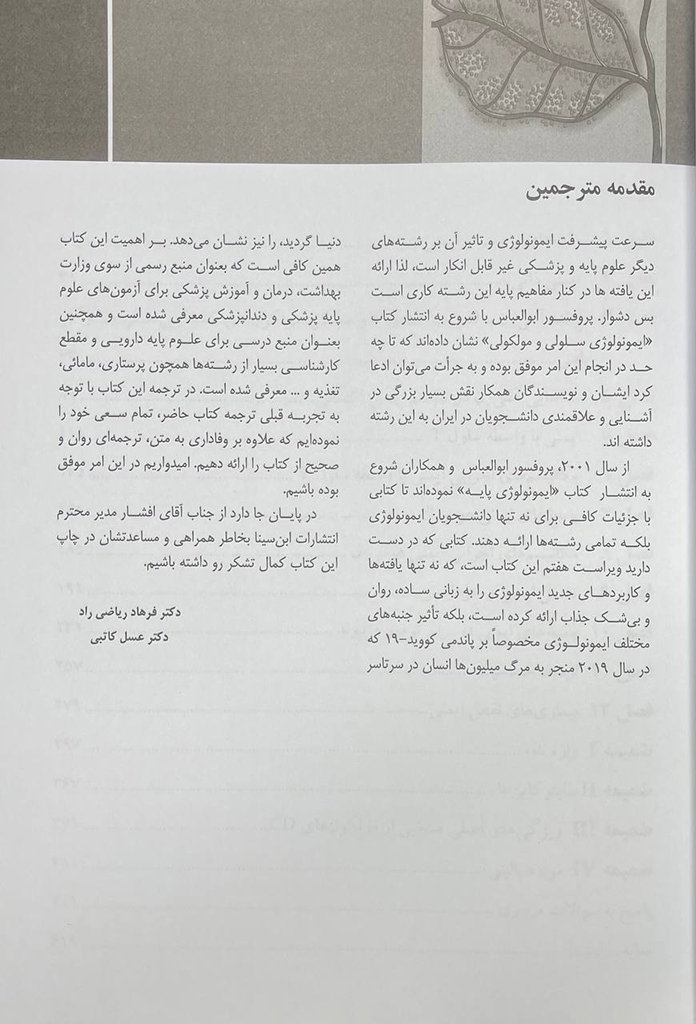 مقدمه مترجمین
سرعت پیشرفت ایمونولوژی و تاثیر آن بر رشته‌های
دیگر علوم پایه و پزشکی غیر قابل انکار است، لذا ارائه
این یافته ها در کنار مفاهیم پایه این رشته کاری است
بس دشوار. پروفسور ابوالعباس با شروع به انتشار کتاب
«ایمونولوژی سلولی و مولکولی» نشان داده‌اند که تا چه
حد در انجام این امر موفق بوده و به جرأت می‌توان ادعا
کرد ایشان و نویسندگان همکار نقش بسیار بزرگی در
آشنایی و علاقمندی دانشجویان در ایران به این رشته
داشته اند.
از سال ۲۰۰۱، پروفسور ابوالعباس و همکاران شروع
به انتشار کتاب «ایمونولوژی پایه» نموده‌اند تا کتابی
با جزئیات کافی برای نه تنها دانشجویان ایمونولوژی
بلکه تمامی رشته‌ها ارائه دهند. کتابی که در دست
دارید ویراست هفتم این کتاب است، که نه تنها یافته‌ها
و کاربردهای جدید ایمونولوژی را به زبانی ساده، روان
و بی‌شک جذاب ارائه کرده است، بلکه تأثیر جنبه‌های
مختلف ایمونولوژی مخصوصاً بر پاندمی کووید-۱۹ که
در سال ۲۰۱۹ منجر به مرگ میلیون‌ها انسان در سرتاسر
دنیا گردید، را نیز نشان می‌دهد. بر اهمیت این کتاب
همین کافی است که بعنوان منبع رسمی از سوی وزارت
بهداشت، درمان و آموزش پزشکی برای آزمون‌های علوم
پایه پزشکی و دندانپزشکی معرفی شده است و همچنین
بعنوان منبع درسی برای علوم پایه دارویی و مقطع
کارشناسی بسیار از رشته‌ها همچون پرستاری، مامائی،
تغذیه و ... معرفی شده است. در ترجمه این کتاب با توجه
به تجربه قبلی ترجمه کتاب حاضر، تمام سعی خود را
نموده‌ایم که علاوه بر وفاداری به متن، ترجمه‌ای روان و
صحیح از کتاب را ارائه دهیم. امیدواریم در این امر موفق
بوده باشیم.
در پایان جا دارد از جناب آقای افشار مدیر محترم
انتشارات ابن‌سینا بخاطر همراهی و مساعدتشان در چاپ
این کتاب کمال تشکر رو داشته باشیم.
دکتر فرهاد ریاضی راد
دکتر عسل کاتبی